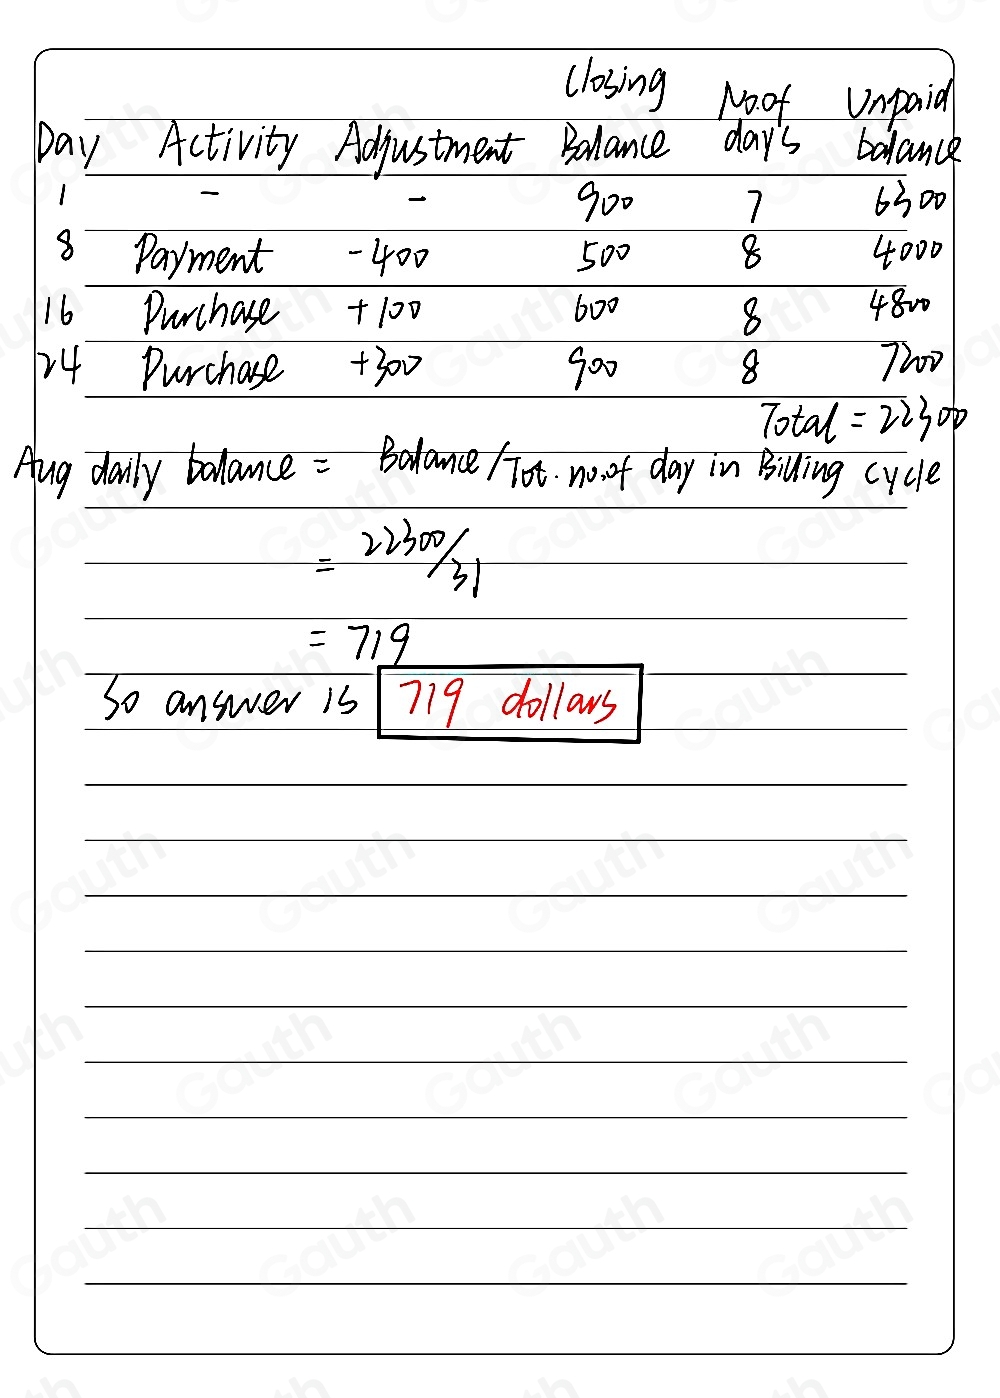 Closing No.of Unpaid
Day Activity Adjustment Balance day's balance
1 - - 900 7 6300
8 Payment -400 500 8 4000
16 Purchase +100 600 8 4800
24 Purchase +300 900 8 7200
Total = 22300
Aug daily balance = Balance/Tot. no.of day in Billing cycle
= 22300/31
= 719
So answer is 719 dollars
Gauth